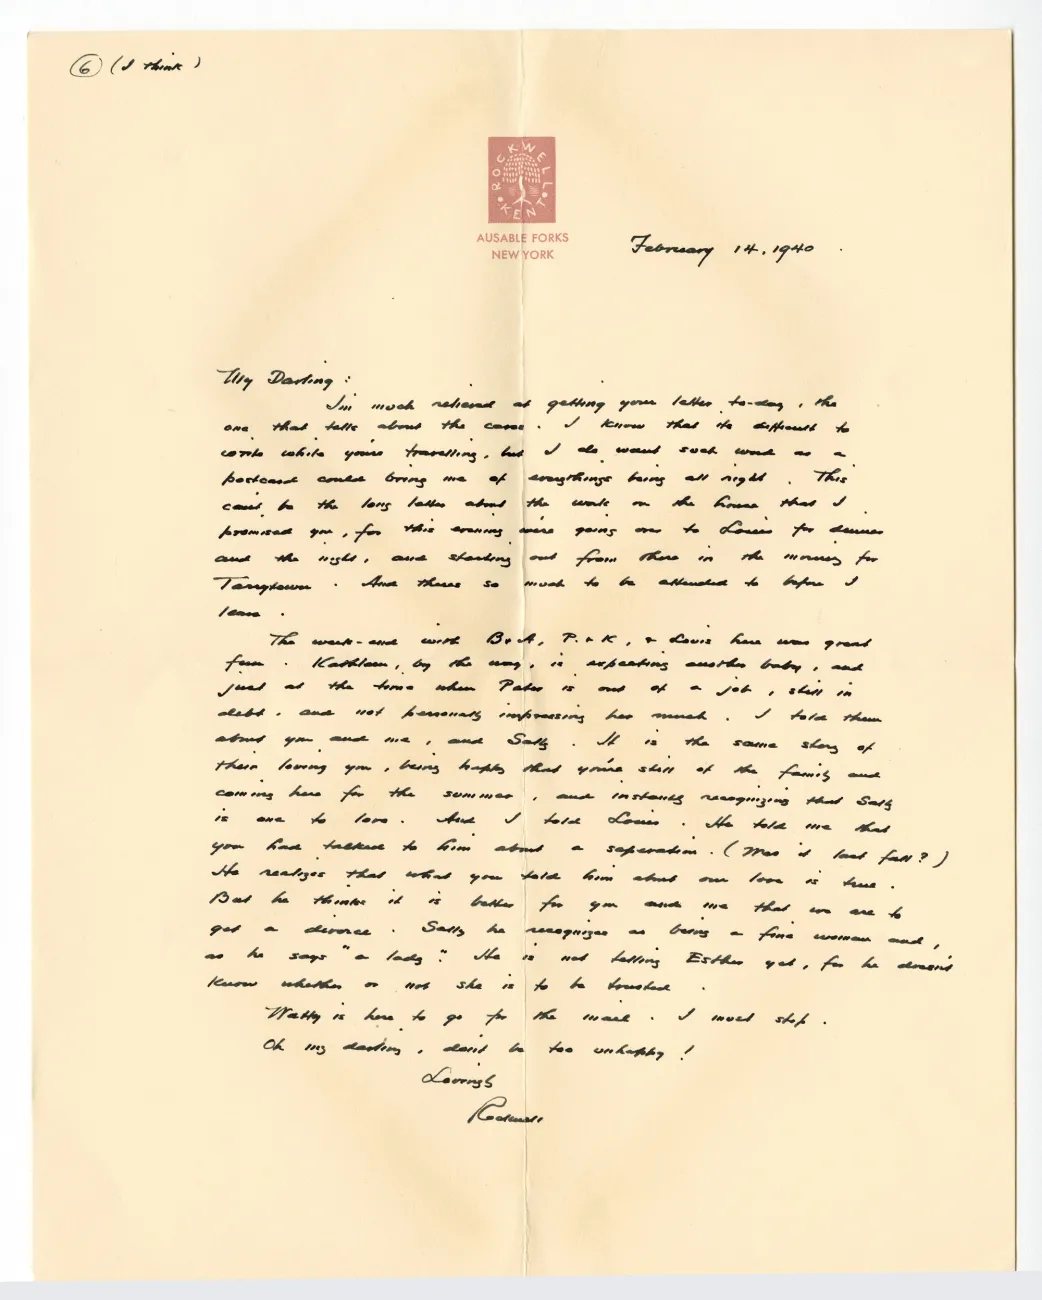 6 (I think)
ROCKWELL KENT
AUSABLE FORKS
NEW YORK
February 14, 1940
My Darling:
I'm much relieved at getting your letter to-day, the
one that tells about the cares. I know that its difficult to
write while you're travelling, but I do want such word as a
postcard could bring me of everythings being all right. This
can't be the long letter about the work on the house that I
promised you, for this evening we're going over to Louis for dinner
and the night, and starting out from there in the morning for
Tarrytown. And theres so much to be attended to before I
leave.
The week-end with B+A, P.+K, + Louis here was great
fun. Kathleen, by the way, is expecting another baby, and
just at the time when Peter is out of a job, still in
debt, and not personally impressing her much. I told them
about you and me, and Sally. It is the same story of
their loving you, being happy that you're still of the family and
coming here for the summer, and instantly recognizing that Sally
is one to love. And I told Louis. He told me that
you had talked to him about a separation. (Was it last fall?)
He realizes that what you told him about our love is true.
But he thinks it is better for you and me that we are to
get a divorce. Sally he recognizes as being a fine woman and,
as he says "a lady". He is not telling Esther yet, for he doesn't
know whether or not she is to be trusted.
Watty is here to go for the mail. I must stop.
Oh my darling, don't be too unhappy!
Lovingly
Rockwell